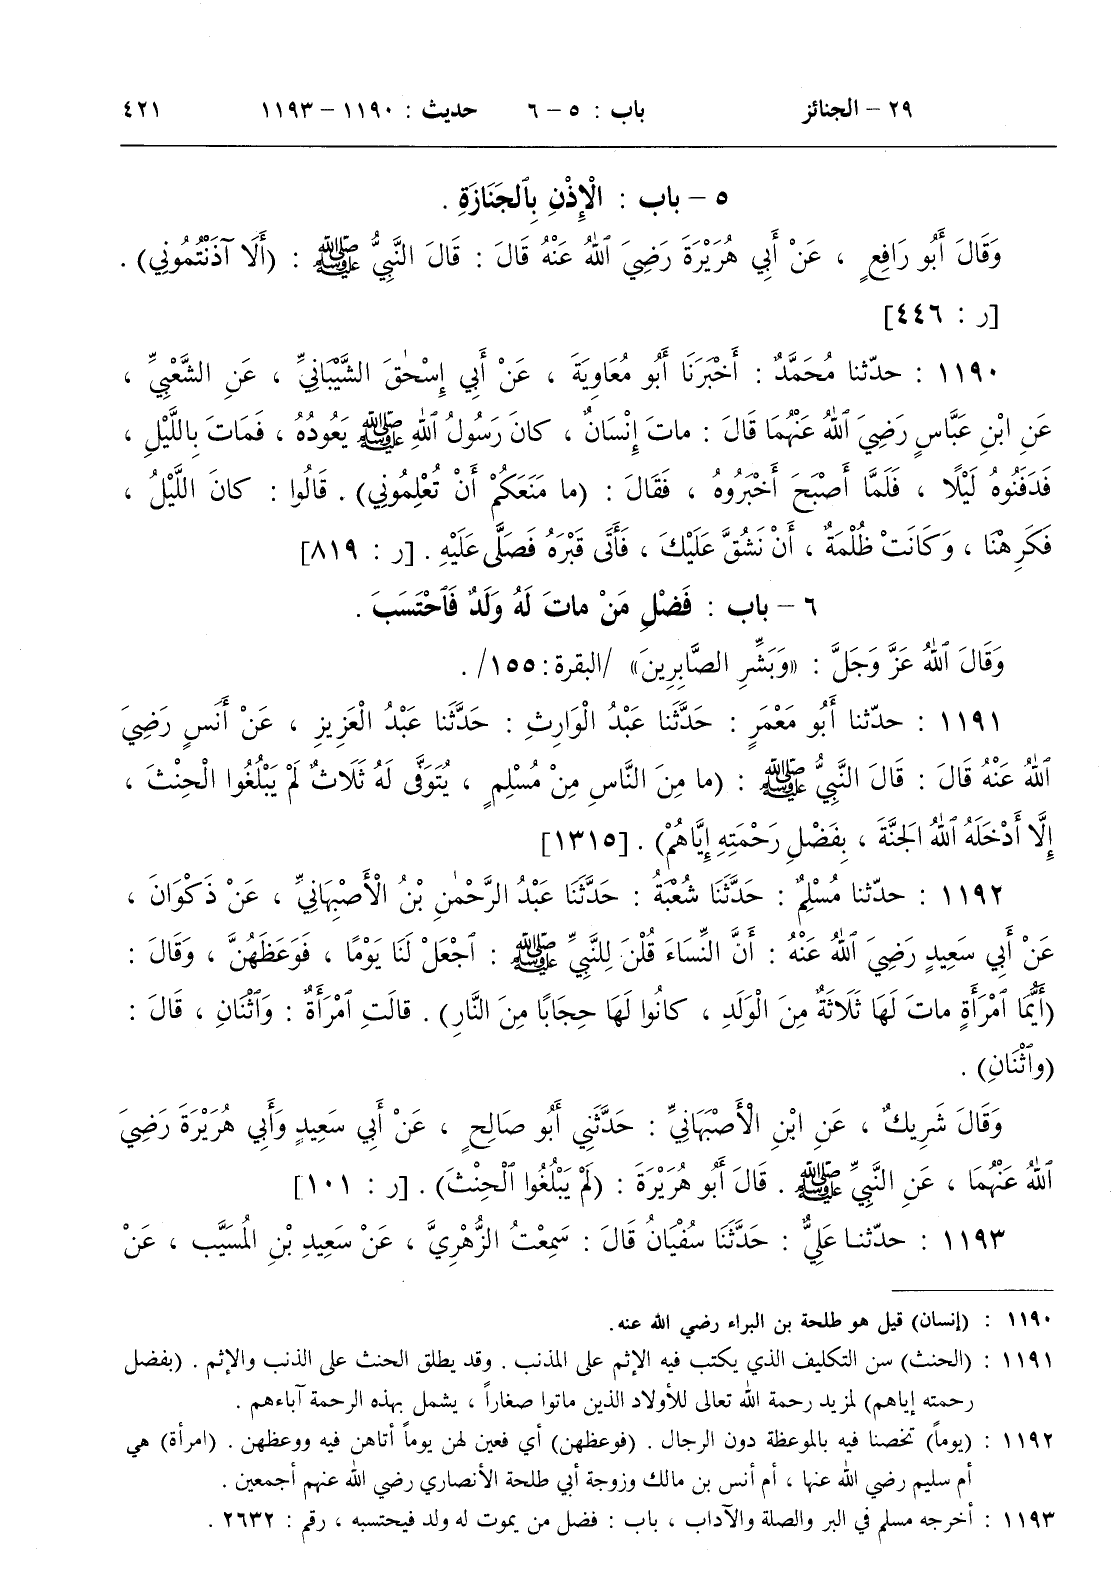 ٢٩ – الجنائز باب : ٥ – ٦ حديث : ١١٩٠ – ١١٩٣ ٤٢١
٥ – باب : الْإِذْنِ بِٱلجَنَازَةِ .
وَقَالَ أَبُو رَافِعٍ ، عَنْ أَبِي هُرَيْرَةَ رَضِيَ ٱللهُ عَنْهُ قَالَ : قَالَ النَّبِيُّ ﷺ : (أَلَا آذَنْتُمُونِي) .
[ر : ٤٤٦]
١١٩٠ : حدّثنا مُحَمَّدٌ : أَخْبَرَنَا أَبُو مُعَاوِيَةَ ، عَنْ أَبِي إِسْحٰقَ الشَّيْبَانِيِّ ، عَنِ الشَّعْبِيِّ ،
عَنِ ابْنِ عَبَّاسٍ رَضِيَ ٱللهُ عَنْهُمَا قَالَ : ماتَ إِنْسَانٌ ، كانَ رَسُولُ ٱللهِ ﷺ يَعُودُهُ ، فَمَاتَ بِاللَّيْلِ ،
فَدَفَنُوهُ لَيْلًا ، فَلَمَّا أَصْبَحَ أَخْبَرُوهُ ، فَقَالَ : (ما مَنَعَكُمْ أَنْ تُعْلِمُونِي) . قَالُوا : كانَ اللَّيْلُ ،
فَكَرِهْنَا ، وَكَانَتْ ظُلْمَةٌ ، أَنْ نَشُقَّ عَلَيْكَ ، فَأَتَى قَبْرَهُ فَصَلَّى عَلَيْهِ . [ر : ٨١٩]
٦ – باب : فَضْلِ مَنْ ماتَ لَهُ وَلَدٌ فَٱحْتَسَبَ .
وَقَالَ ٱللهُ عَزَّ وَجَلَّ : «وَبَشِّرِ الصَّابِرِينَ» /البقرة: ١٥٥/ .
١١٩١ : حدّثنا أَبُو مَعْمَرٍ : حَدَّثَنا عَبْدُ الْوَارِثِ : حَدَّثَنا عَبْدُ الْعَزِيزِ ، عَنْ أَنَسٍ رَضِيَ
ٱللهُ عَنْهُ قَالَ : قَالَ النَّبِيُّ ﷺ : (ما مِنَ النَّاسِ مِنْ مُسْلِمٍ ، يُتَوَفَّى لَهُ ثَلَاثٌ لَمْ يَبْلُغُوا الْحِنْثَ ،
إِلَّا أَدْخَلَهُ ٱللهُ الجَنَّةَ ، بِفَضْلِ رَحْمَتِهِ إِيَّاهُمْ) . [١٣١٥]
١١٩٢ : حدّثنا مُسْلِمٌ : حَدَّثَنَا شُعْبَةُ : حَدَّثَنَا عَبْدُ الرَّحْمٰنِ بْنُ الْأَصْبَهَانِيِّ ، عَنْ ذَكْوَانَ ،
عَنْ أَبِي سَعِيدٍ رَضِيَ ٱللهُ عَنْهُ : أَنَّ النِّسَاءَ قُلْنَ لِلنَّبِيِّ ﷺ : ٱجْعَلْ لَنَا يَوْمًا ، فَوَعَظَهُنَّ ، وَقَالَ :
(أَيُّمَا ٱمْرَأَةٍ ماتَ لَهَا ثَلَاثَةٌ مِنَ الْوَلَدِ ، كانُوا لَهَا حِجَابًا مِنَ النَّارِ) . قالَتِ ٱمْرَأَةٌ : وَٱثْنَانِ ، قَالَ :
(وٱثْنَانِ) .
وَقَالَ شَرِيكٌ ، عَنِ ابْنِ الْأَصْبَهَانِيِّ : حَدَّثَنِي أَبُو صَالِحٍ ، عَنْ أَبِي سَعِيدٍ وَأَبِي هُرَيْرَةَ رَضِيَ
ٱللهُ عَنْهُمَا ، عَنِ النَّبِيِّ ﷺ . قَالَ أَبُو هُرَيْرَةَ : (لَمْ يَبْلُغُوا ٱلْحِنْثَ) . [ر : ١٠١]
١١٩٣ : حدّثنا عَلِيٌّ : حَدَّثَنَا سُفْيَانُ قَالَ : سَمِعْتُ الزُّهْرِيَّ ، عَنْ سَعِيدِ بْنِ المُسَيَّبِ ، عَنْ
١١٩٠ : (إنسان) قيل هو طلحة بن البراء رضي الله عنه.
١١٩١ : (الحنث) سن التكليف الذي يكتب فيه الإثم على المذنب . وقد يطلق الحنث على الذنب والإثم . (بفضل
رحمته إياهم) لمزيد رحمة الله تعالى للأولاد الذين ماتوا صغاراً ، يشمل بهذه الرحمة آباءهم .
١١٩٢ : (يوماً) تخصنا فيه بالموعظة دون الرجال . (فوعظهن) أي فعين لهن يوماً أتاهن فيه ووعظهن . (امرأة) هي
أم سليم رضي الله عنها ، أم أنس بن مالك وزوجة أبي طلحة الأنصاري رضي الله عنهم أجمعين .
١١٩٣ : أخرجه مسلم في البر والصلة والآداب ، باب : فضل من يموت له ولد فيحتسبه ، رقم : ٢٦٣٢ .